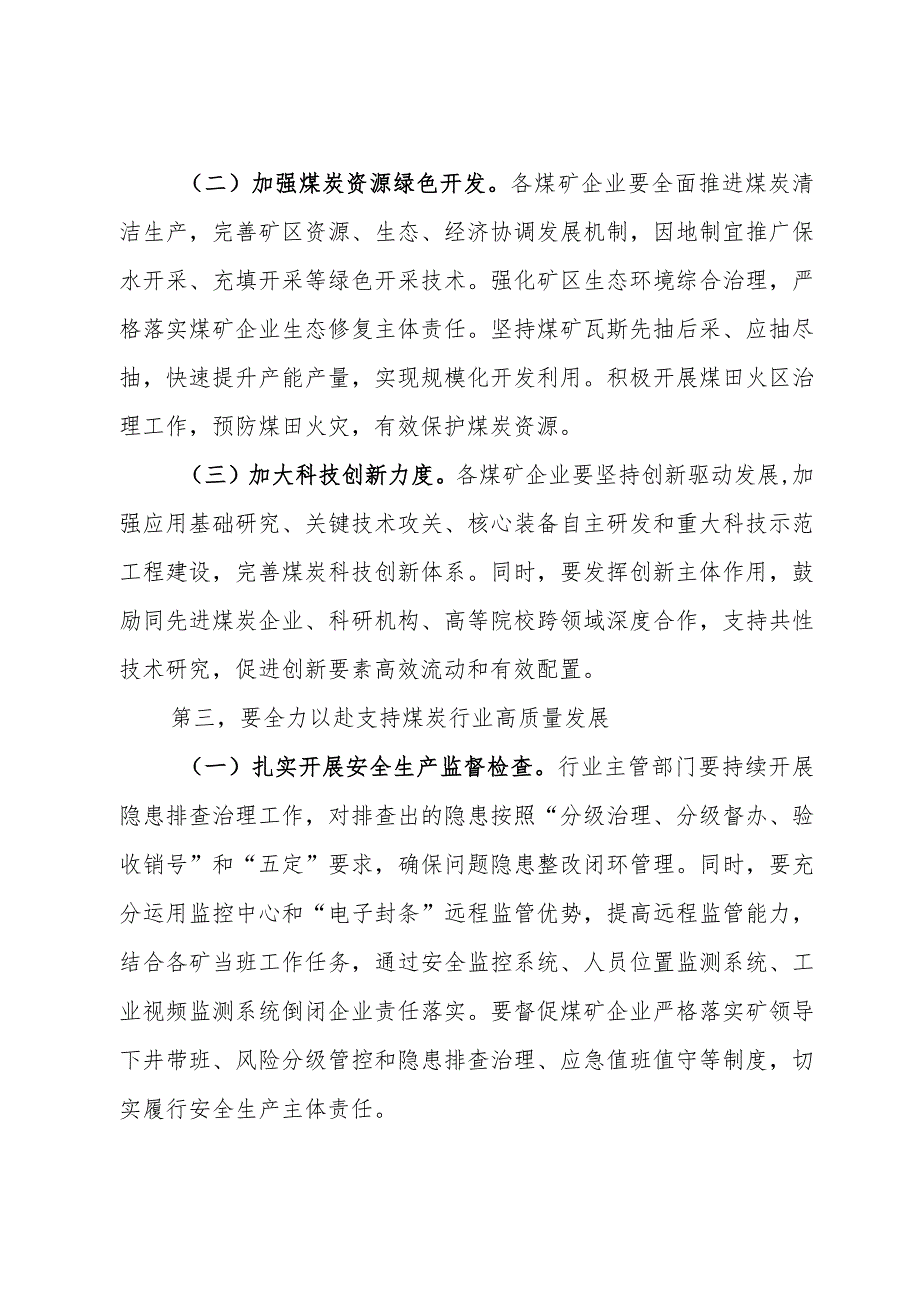 （二）加强煤炭资源绿色开发。各煤矿企业要全面推进煤炭清
洁生产，完善矿区资源、生态、经济协调发展机制，因地制宜推广保
水开采、充填开采等绿色开采技术。强化矿区生态环境综合治理，严
格落实煤矿企业生态修复主体责任。坚持煤矿瓦斯先抽后采、应抽尽
抽，快速提升产能产量，实现规模化开发利用。积极开展煤田火区治
理工作，预防煤田火灾，有效保护煤炭资源。
（三）加大科技创新力度。各煤矿企业要坚持创新驱动发展,加
强应用基础研究、关键技术攻关、核心装备自主研发和重大科技示范
工程建设，完善煤炭科技创新体系。同时，要发挥创新主体作用，鼓
励同先进煤炭企业、科研机构、高等院校跨领域深度合作，支持共性
技术研究，促进创新要素高效流动和有效配置。
第三，要全力以赴支持煤炭行业高质量发展
（一）扎实开展安全生产监督检查。行业主管部门要持续开展
隐患排查治理工作，对排查出的隐患按照“分级治理、分级督办、验
收销号”和“五定”要求，确保问题隐患整改闭环管理。同时，要充
分运用监控中心和“电子封条”远程监管优势，提高远程监管能力，
结合各矿当班工作任务，通过安全监控系统、人员位置监测系统、工
业视频监测系统倒闭企业责任落实。要督促煤矿企业严格落实矿领导
下井带班、风险分级管控和隐患排查治理、应急值班值守等制度，切
实履行安全生产主体责任。